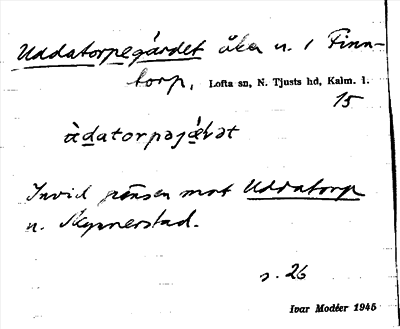 Uddatorpegärdet åker u. 1 Finn-
torp, Lofta sn, N. Tjusts hd, Kalm. l.
15
Invid gränsen mot Uddatorp
u.
s. 26
Ivar Modéer 1945